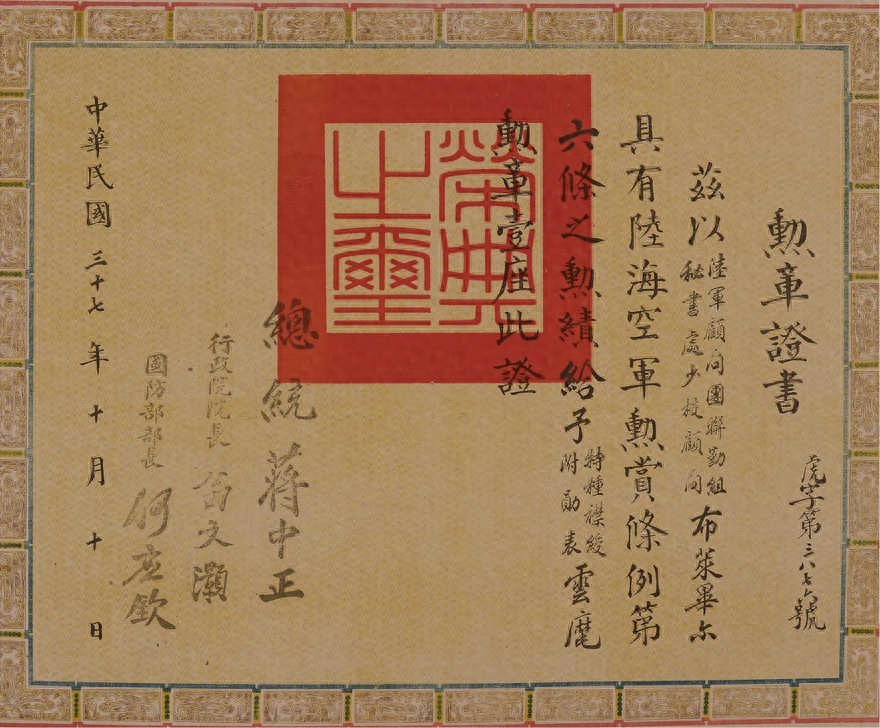 虎字第三八七六號
勳章證書
茲以陸軍顧問團聯勤組秘書處少校顧問布萊畢尔
具有陸海空軍勳賞條例第
六條之勳績給予特種襟綬附勛表雲麾
勳章壹座此證
榮典之璽
總統 蔣中正
行政院院長 翁文灝
國防部部長 何應欽
中華民國三十七年十月十日